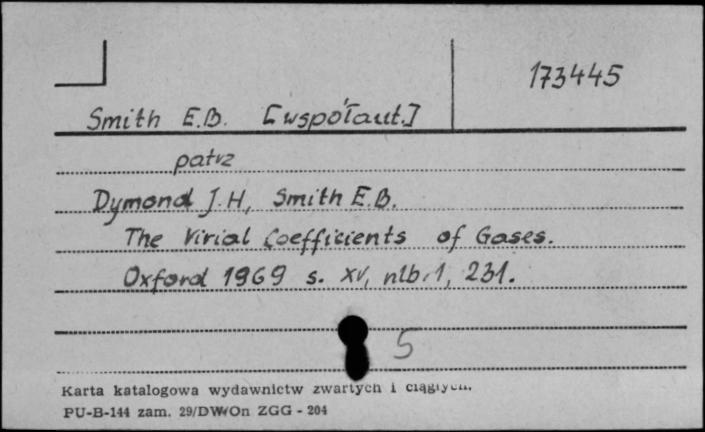 173445
Smith E.B. [współaut.]
patrz
Dymond J.H., Smith E.B.
The Virial Coefficients of Gases.
Oxford 1969 s. XV, nlb. 1, 231.
5
Karta katalogowa wydawnictw zwartych i ciągłych.
PU-B-144 zam. 29/DW/On ZGG - 204